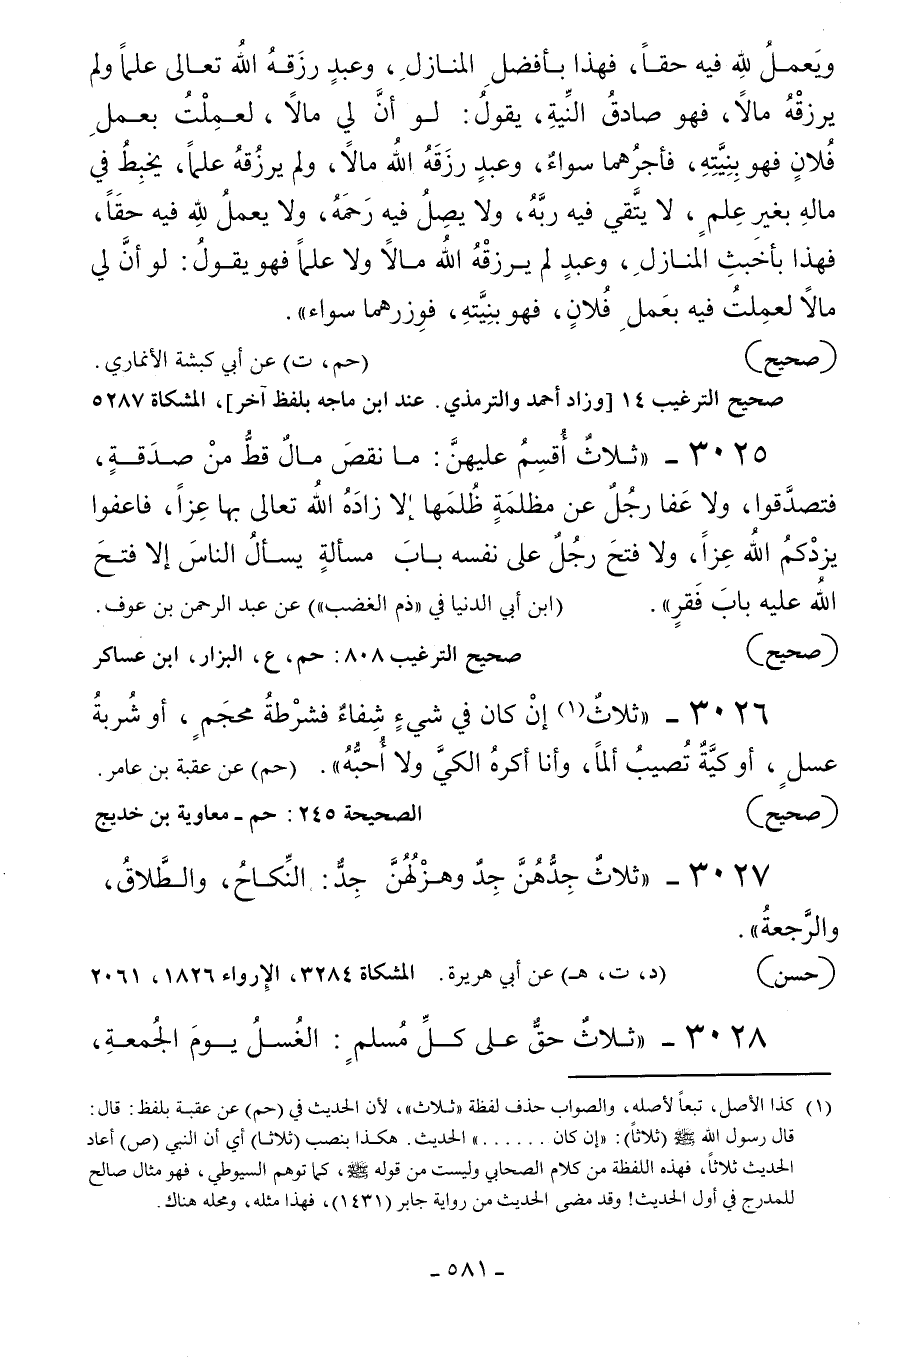 ويَعمـلُ للهِ فيه حقـاً، فهذا بـأفضـلِ المنـازلِ، وعبدٍ رزَقـهُ اللهُ تعـالى علـماً ولم
يرزقْهُ مالًا، فهو صادقُ النِّيةِ، يقولُ: لـو أنَّ لي مالًا، لعمِلْتُ بعمـلِ
فُلانٍ فهو بِنِيَّتِهِ، فأجرُهما سواءٌ، وعبدٍ رزَقَهُ اللهُ مالًا، ولم يرزُقهُ علماً، يخبِطُ في
مالهِ بغيرِ عِلمٍ، لا يتَّقي فيه ربَّهُ، ولا يصِلُ فيه رَحمَهُ، ولا يعملُ للهِ فيه حقاً،
فهذا بأخبَثِ المنـازلِ، وعبدٍ لم يـرزقْهُ اللهُ مـالًا ولا علماً فهو يقـولُ: لو أنَّ لي
مالًا لعمِلتُ فيه بعَملِ فُلانٍ، فهو بنِيَّتهِ، فوِزرهما سواء».
(صحيح) (حم، ت) عن أبي كبشة الأنماري.
صحيح الترغيب ١٤ [وزاد أحمد والترمذي. عند ابن ماجه بلفظ آخر]، المشكاة ٥٢٨٧
٣٠٢٥ ـ «ثـلاثٌ أُقسِمُ عليهنَّ: مـا نقصَ مـالٌ قطُّ منْ صـدَقـةٍ،
فتصدَّقوا، ولا عَفا رجُلٌ عن مظلمَةٍ ظُلمَها إلا زادَهُ اللهُ تعالى بها عِزاً، فاعفوا
يزدْكمُ اللهُ عِزاً، ولا فتحَ رجُلٌ على نفسه بـابَ مسألةٍ يسـألُ الناسَ إلا فتـحَ
اللهُ عليه بابَ فَقرٍ». (ابن أبي الدنيا في «ذم الغضب») عن عبد الرحمن بن عوف.
(صحيح) صحيح الترغيب ٨٠٨: حم، ع، البزار، ابن عساكر
٣٠٢٦ ـ «ثلاثٌ(١) إنْ كان في شيءٍ شِفاءٌ فشرْطةُ محجَمٍ، أو شُربةُ
عسلٍ، أو كيَّةٌ تُصيبُ ألماً، وأنا أكرهُ الكيَّ ولا أُحبُّهُ». (حم) عن عقبة بن عامر.
(صحيح) الصحيحة ٢٤٥: حم ـ معاوية بن خديج
٣٠٢٧ ـ «ثلاثٌ جِدُّهُنَّ جِدٌ وهـزْلُهُنَّ جِدٌّ: النِّكـاحُ، والـطَّلاقُ،
والرَّجعةُ».
(حسن) (د، ت، هـ) عن أبي هريرة. المشكاة ٣٢٨٤، الإرواء ١٨٢٦، ٢٠٦١
٣٠٢٨ ـ «ثـلاثٌ حقٌّ علـى كـلِّ مُسلمٍ: الغُسلُ يـومَ الجُمعـةِ،
(١) كذا الأصل، تبعاً لأصله، والصواب حذف لفظة «ثـلاث»، لأن الحديث في (حم) عن عقبة بلفظ: قال:
قال رسول الله ﷺ (ثلاثاً): «إن كان . . . . . . » الحديث. هكـذا بنصب (ثلاثـا) أي أن النبي (ص) أعاد
الحديث ثلاثاً، فهذه اللفظة من كلام الصحابي وليست من قوله ﷺ، كما توهم السيوطي، فهو مثال صالح
للمدرج في أول الحديث! وقد مضى الحديث من رواية جابر (١٤٣١)، فهذا مثله، ومحله هناك.
ـ ٥٨١ ـ